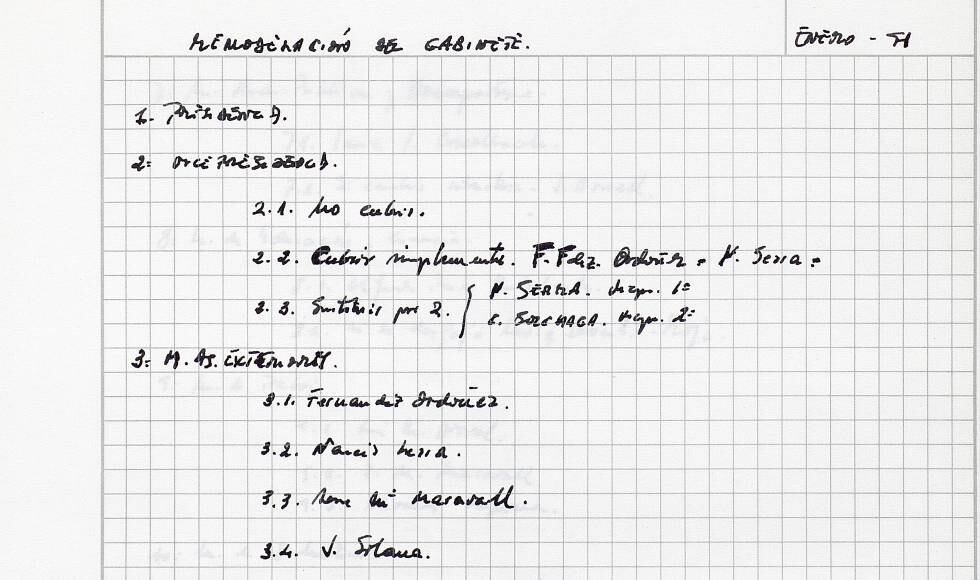 REMODELACIÓN DEL GABINETE. ENERO - 91
1- PRESIDENCIA.
2- VICEPRESIDENCIA.
2.1. No cubrir.
2.2. Cubrir simplemente. F. Fdez. Ordóñez = N. Serra =
2.3. Sustituir por 2. { N. SERRA. Vicep. 1ª
C. SOLCHAGA. Vicep. 2ª
3- M. AS. EXTERIORES.
3.1. Fernandez Ordóñez.
3.2. Narcis Serra.
3.3. Jose Mª Maravall.
3.4. J. Solana.